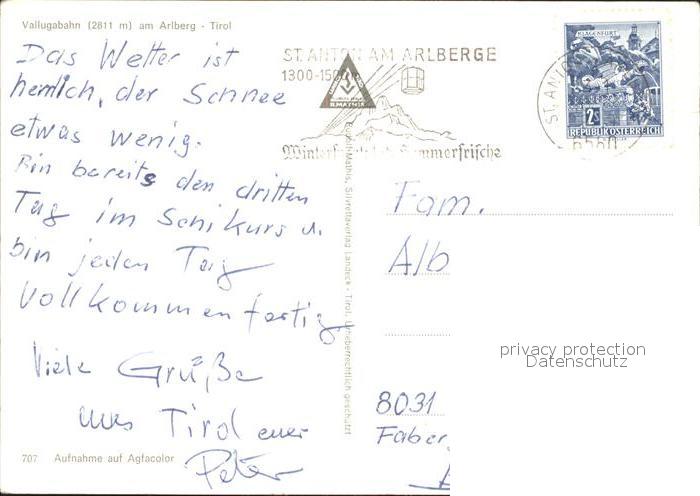 Vallugabahn (2811 m) am Arlberg - Tirol
Das Wetter ist
herrlich, der Schnee
etwas wenig.
Bin bereits den dritten
Tag im Schikurs u.
bin jeden Tag
Vollkommen fertig
Viele Grüße
aus Tirol euer
Peter
707 Aufnahme auf Agfacolor
Mathis, Silvrettaverlag Landeck - Tirol. Urheberrechtlich geschützt
ST. ANTON AM ARLBERGE
1300-15
Sommerfrische
ST. ANT
6580
KLAGENFURT
2 S
REPUBLIK ÖSTERREICH
Fam.
Alb
8031
Faber
privacy protection
Datenschutz